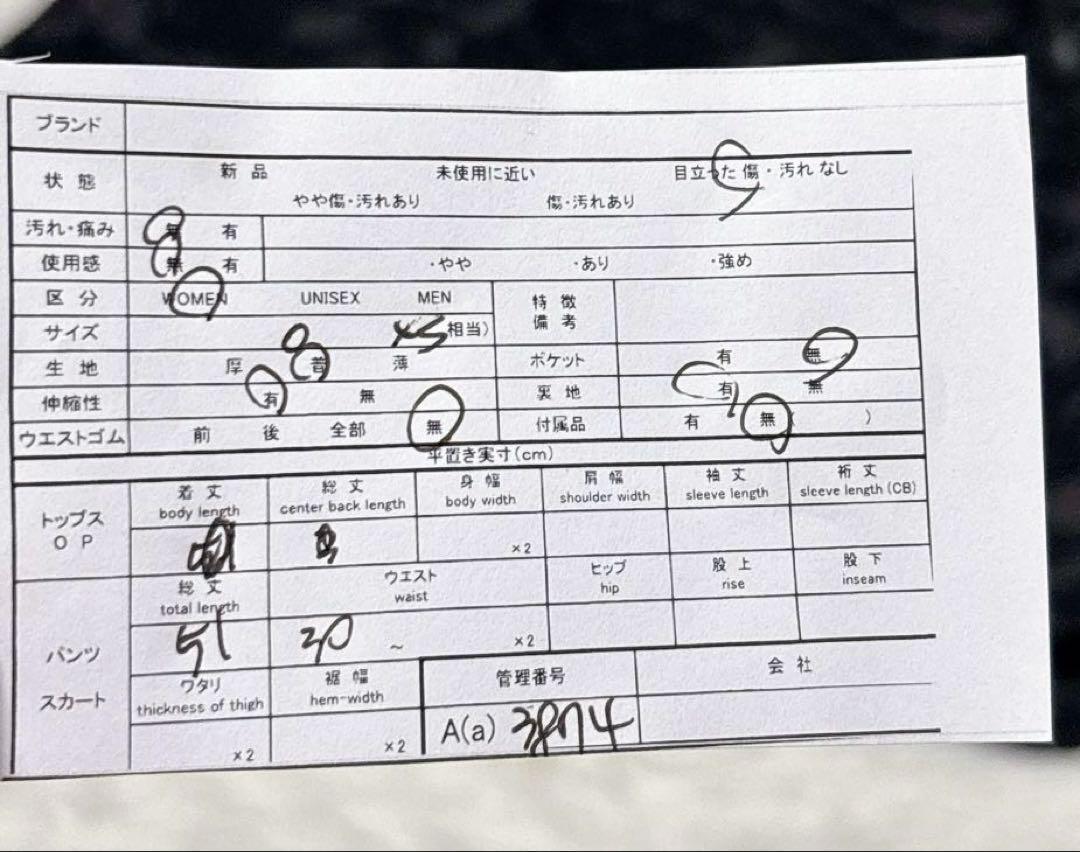 ブランド
状態 新品 未使用に近い 目立った傷・汚れなし
やや傷・汚れあり 傷・汚れあり
汚れ・痛み 無 有
使用感 無 有 ・やや ・あり ・強め
区分 WOMEN UNISEX MEN
特徴
備考
サイズ 相当)
生地 厚 普 薄 ポケット 有 無
伸縮性 有 無 裏地 有 無
ウエストゴム 前 後 全部 無 付属品 有 無 )
平置き実寸(cm)
トップス
OP
着丈 総丈 身幅 肩幅 袖丈 裄丈
body length center back length body width shoulder width sleeve length sleeve length (CB)
×2
パンツ
スカート
総丈 ウエスト ヒップ 股上 股下
total length waist hip rise inseam
51 30 ~ ×2
ワタリ 裾幅 管理番号 会社
thickness of thigh hem-width
×2 ×2 A(a) 3874